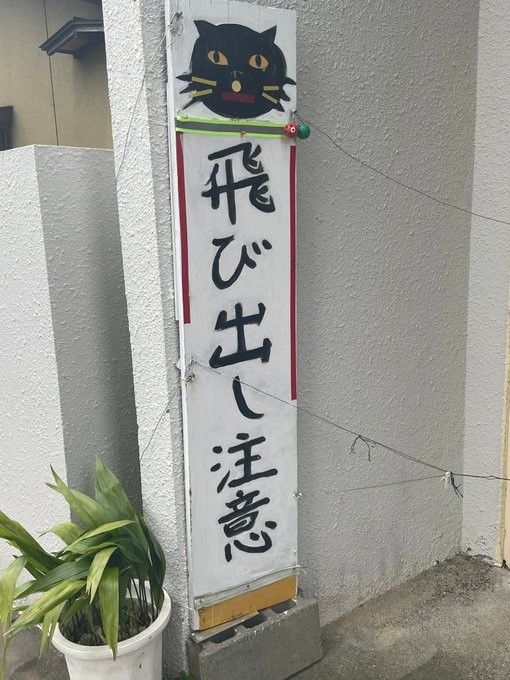 飛び出し注意